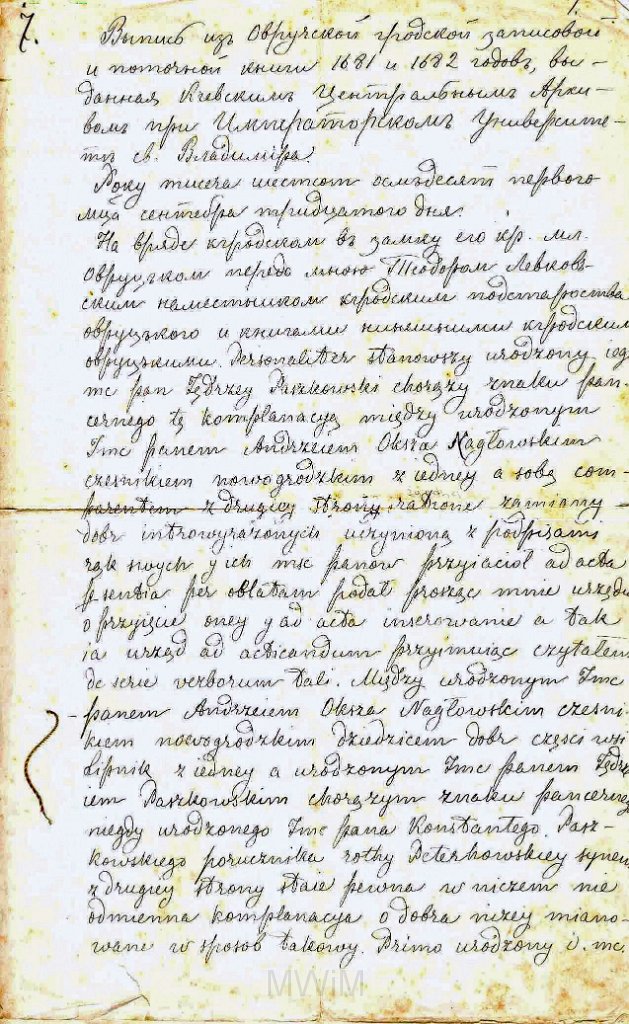 7.
Выпись изъ Овручской гродской записовой
и поточной книги 1681 и 1682 годовъ, вы-
данная Кіевскимъ Центральнымъ Архи-
вомъ при Императорскомъ Университе-
тѣ св. Владиміра.
Року тисеча шестсот осмъдесят первого
мца сентебра тридцатого дня.
На вряде кгродском въ замку его кр. мл.
овруцъком передо мною Теодором Левков-
ским наместником кгродским подстароства
овруцького и книгами нинешними кгродским
овруцькими. Personaliter stanowszy urodzony iego
mc pan Jędrzey Paszkowski chorąży znaku pan-
cernego tę komplanacyą między urodzonym
Imc panem Andrzeiem Oksza Nagłowskim
cześnikiem nowogrodzkim z iedney a sobą com-
parentem z drugiey strony ratione zamiany
dobr introwyrażonych uczynioną z podpisami
rąk swych y ich msc panow przyiacioł ad acta
psentia per oblatam podał prosząc mnie urzędu
o przyięcie oney y ad acta inserowanie a tak
ia urząd ad acticandum przyimuiąc czytałem
de serie verborum tali. Między urodzonym Imc
panem Andrzeiem Oksza Nagłowskim cześni-
kiem nowogrodzkim dziedzicem dobr części wsi
Lipnik z iedney a urodzonym Imc panem Jędrze
iem Paszkowskim chorążym znaku pancerneg
niegdy urodzonego Imc pana Konstantego Pasz-
kowskiego porucznika rothy Peterhowskiey synem
z drugiey strony staie pewna w niczem nie
odmienna komplanacya o dobra niżey miano-
wane w sposob takowy. Primo urodzony i. mc.
MWiM